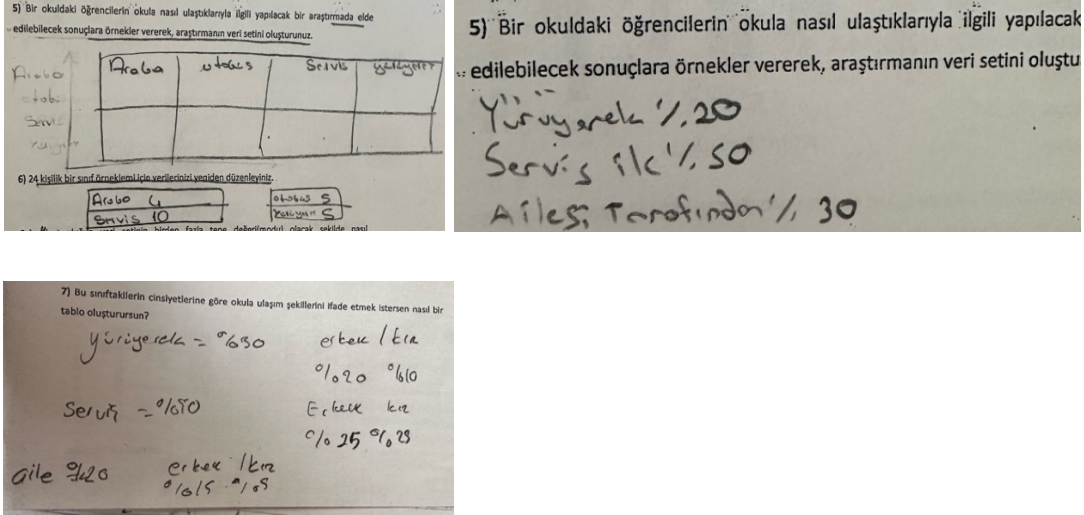 5) Bir okuldaki öğrencilerin okula nasıl ulaştıklarıyla ilgili yapılacak bir araştırmada elde
edilebilecek sonuçlara örnekler vererek, araştırmanın veri setini oluşturunuz.
Araba otobüs Servis yürüyerek
Araba
otobü
Servi
6) 24 kişilik bir sınıf örneklemi için verilerinizi yeniden düzenleyiniz.
Araba 4
Servis 10
otobüs 5
5
5) Bir okuldaki öğrencilerin okula nasıl ulaştıklarıyla ilgili yapılacak
edilebilecek sonuçlara örnekler vererek, araştırmanın veri setini oluştu
Yürüyerek %20
Servis ile %50
Ailesi Tarafından % 30
7) Bu sınıftakilerin cinsiyetlerine göre okula ulaşım şekillerini ifade etmek istersen nasıl bir
tablo oluşturursun?
yürüyerek = %30 erkek / kız
%20 %10
Servis = %50 Erkek kız
%25 %25
aile %20 erkek / kız
%15 %05